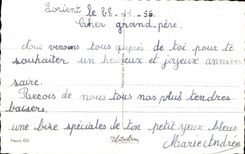 Lorient le 28 - - 56.
Cher grand père.
Nous venons tous auprès de toi pour te
souhaiter un heureux et joyeux anniver
saire.
Recois de nous tous nos plus tendres
baisers.
une bise spéciales de ton petit yeux bleus.
Marie Andrée